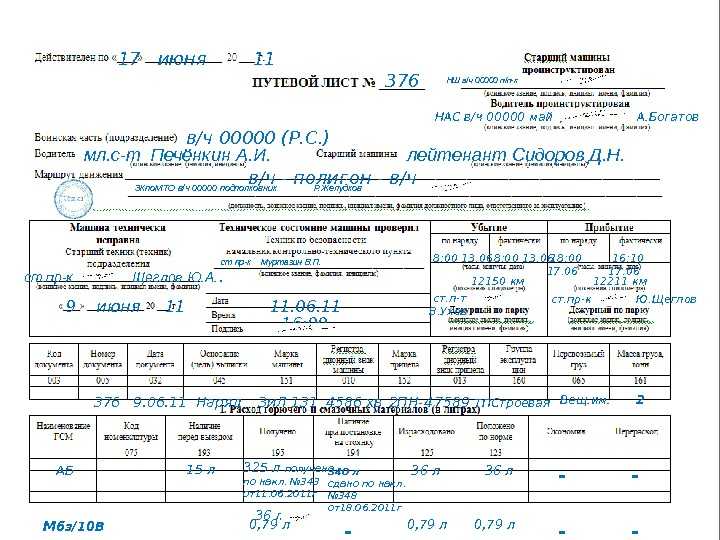 Действителен по «17» июня 20 11 г.
Старший машины проинструктирован
ПУТЕВОЙ ЛИСТ № 376
НШ в/ч 00000 п/п-к
(воинское звание, подпись, инициал имени, фамилия)
Водитель проинструктирован
НАС в/ч 00000 май А.Богатов
(воинское звание, подпись, инициал имени, фамилия)
Воинская часть (подразделение) в/ч 00000 (Р.С.)
Водитель мл.с-т Печёнкин А.И. Старший машины лейтенант Сидоров Д.Н.
(воинское звание, фамилия, инициалы) (воинское звание, фамилия, инициалы)
Маршрут движения в/ч полигон в/ч
ЗКпоМТО в/ч 00000 подполковник Р.Желудков
(должность, воинское звание, подпись, инициал имени, фамилия должностного лица, ответственного за эксплуатацию)
Машина технически исправна
Старший техник (техник) подразделения
ст.пр-к Щеглов Ю.А.
(воинское звание, подпись, инициал имени, фамилия)
«9 июня 20 11
Техническое состояние машины проверил
Техник по безопасности
начальник контрольно-технического пункта
ст пр-к Муртазин В.П.
(воинское звание, подпись, инициал имени, фамилия)
Дата 11.06.11
Время
Подпись
Убытие Прибытие
по наряду фактически по наряду фактически
8:00 13.06 8:00 13.06 18:00 17.06 16:10 17.06
(часы, минуты, дата) (часы, минуты, дата)
12150 км 12211 км
ст.л-т ст.пр-к Ю.Щеглов
Дежурный по парку Дежурный по парку
(воинское звание, подпись, инициал имени, фамилия) (воинское звание, подпись, инициал имени, фамилия)
Код документа Номер документа Дата документа Основание (цель) выписки Марка машины Регистрационный знак машины Марка прицепа Регистрационный знак прицепа Группа эксплуатации Перевозимый груз Масса груза, тонн
003 005 032 045 151 010 152 013 010 065 161
376 9.06.11 Наряд ЗиЛ 131 4586 хв 2ПН-4 7589 Строевая Вещ.им. 2
1. Расход горючего и смазочных материалов (в литрах)
Наименование ГСМ Код номенклатуры Наличие перед выездом Получено Наличие при постановке на стоянку Израсходовано Положено по норме Экономия Перерасход
075 193 195 194 125 123
АБ 15 л 325 л получено по накл. №343 от11.06.2011г 340 л сдано по накл. №348 от18.06.2011г 36 л 36 л - -
36 г
Мбз/10В 0,79 л - 0,79 л 0,79 л - -